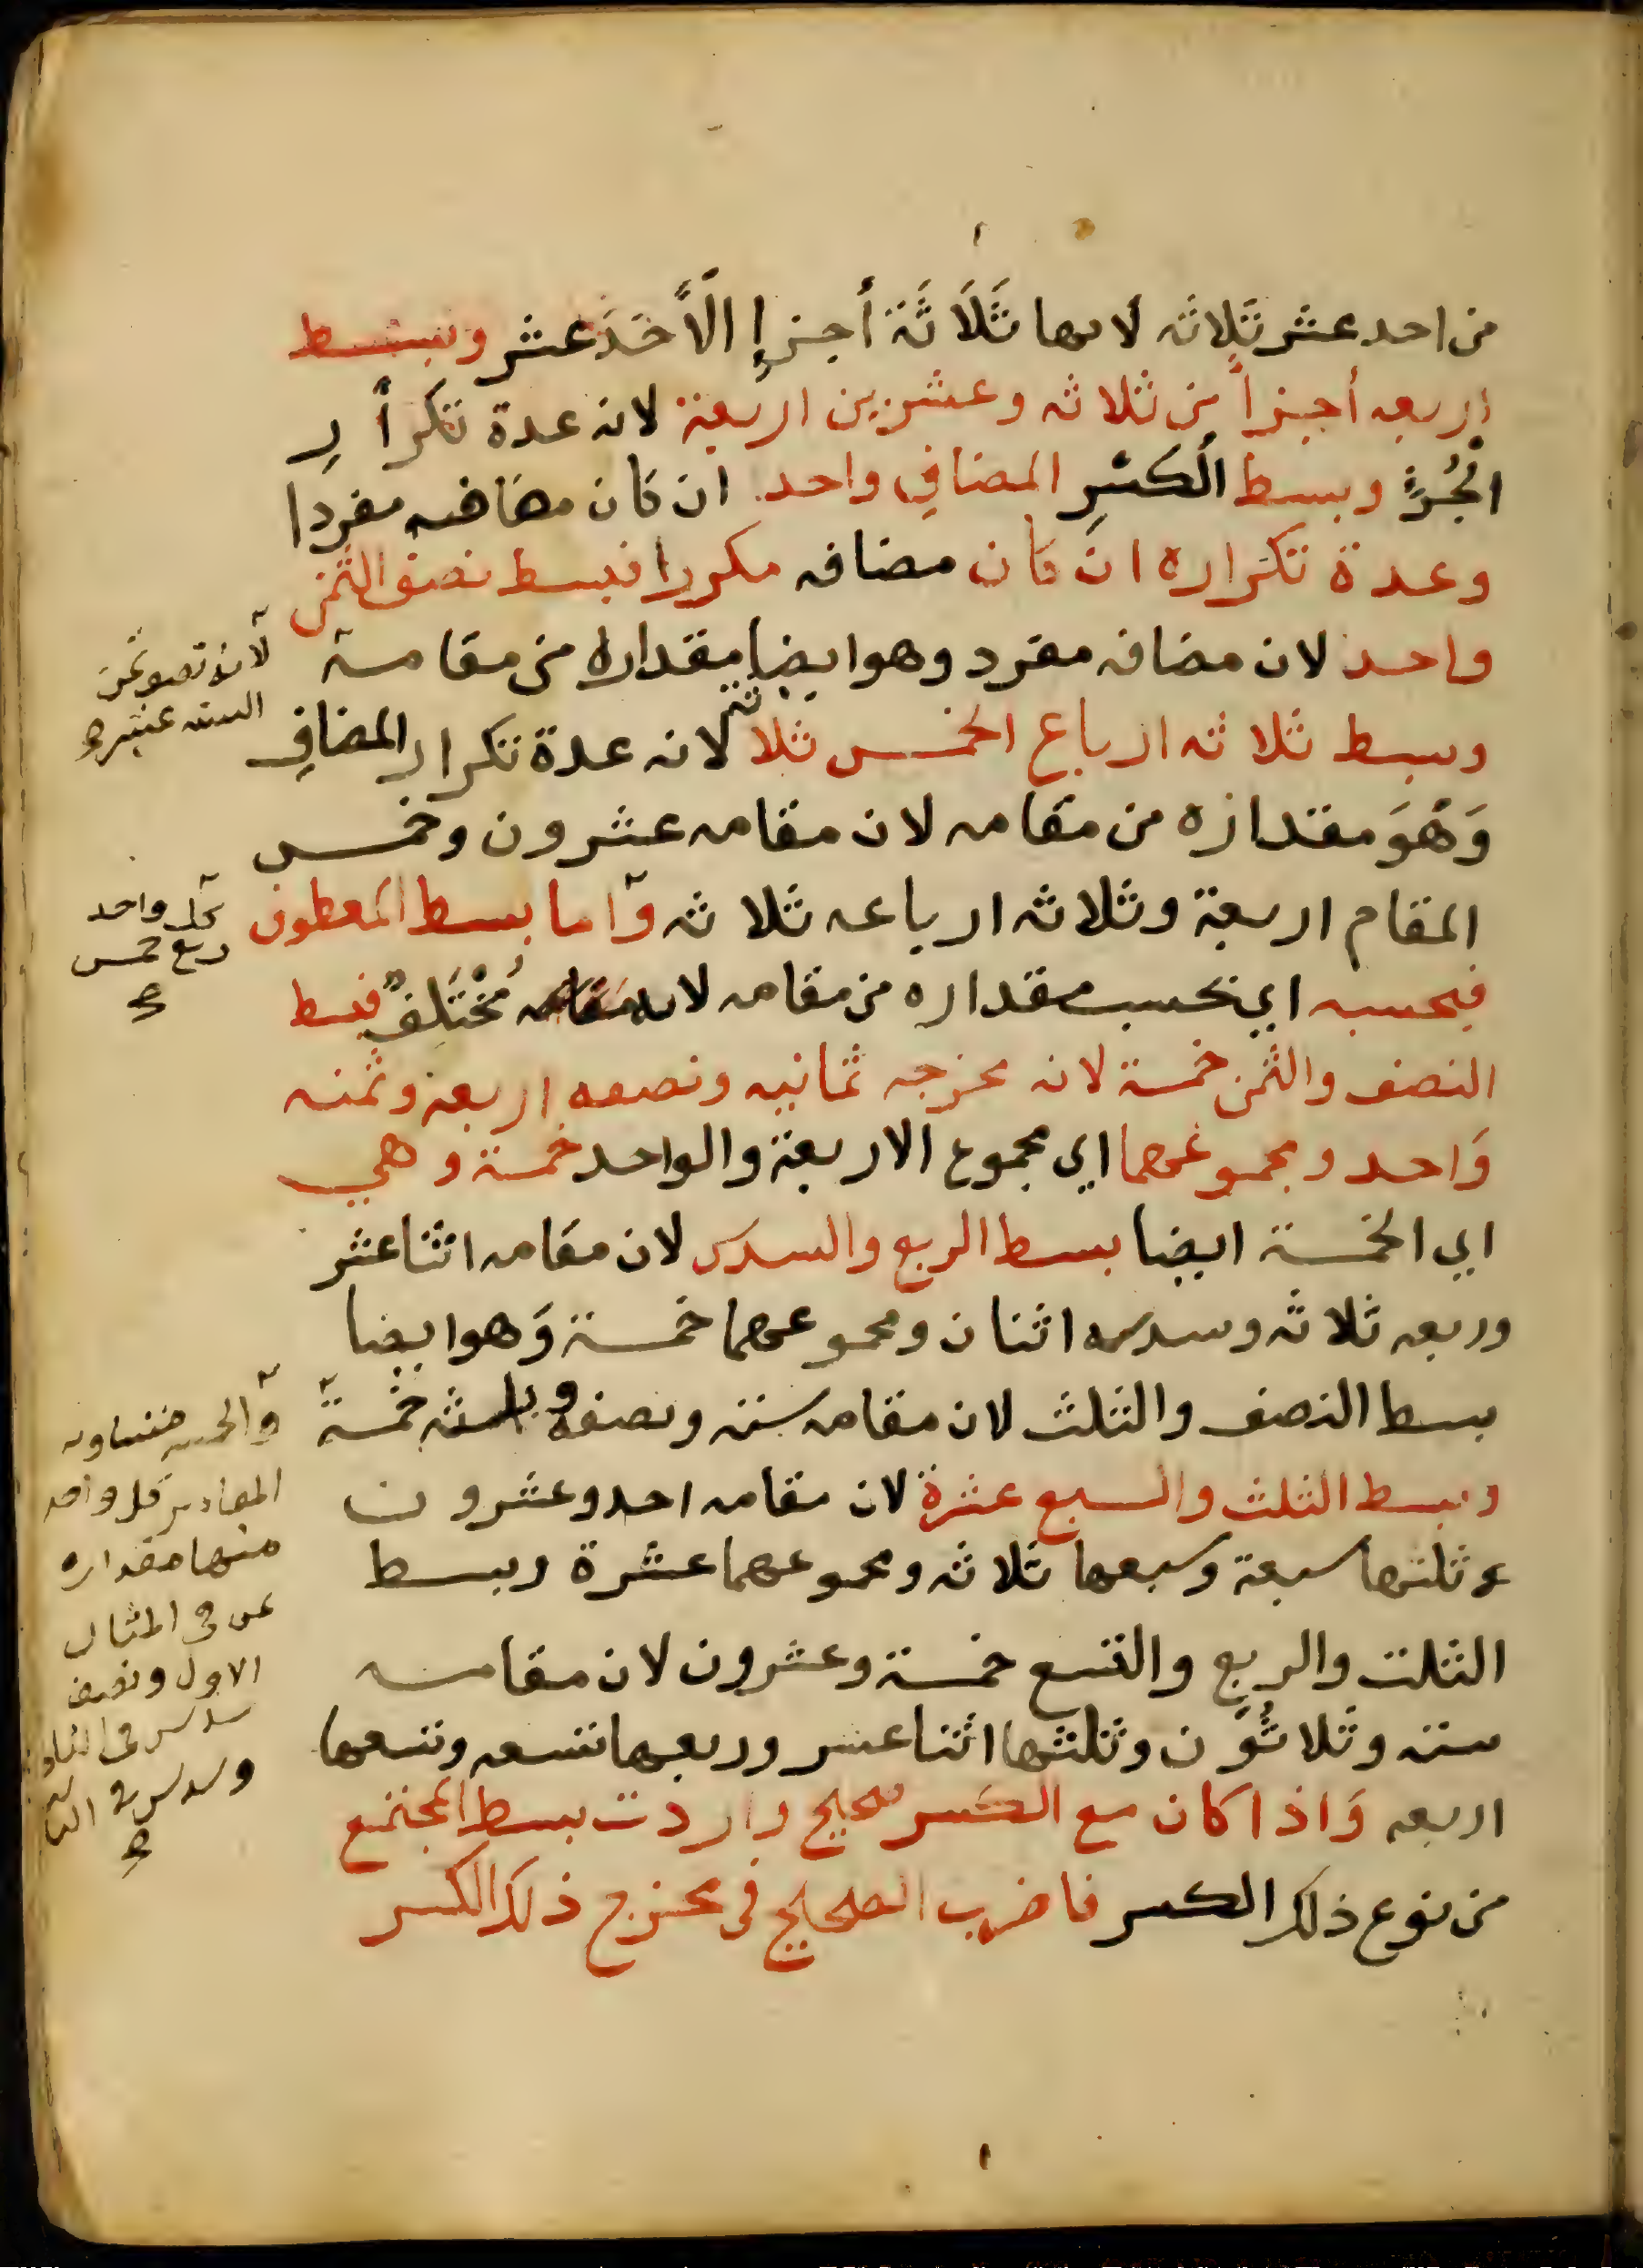 من احد عشر ثلاثه لانها ثَلَاثَة أجزإ الَأحَدَ عشر وبسط
اربعه أجزأ من ثلاثه وعشرين اربعة لانه عدة تكرأر
الجُزءِ وبسط الكسْرِ المضافِ واحد ان كان مضافه مفردا
وعدة تكراره ان كان مضافه مكررا فبسط نصف الثمن
واحد لان مضافه مفرد وهو ايضا مقداره من مقامه
لانه نصف ثمن
الستة عشره
وبسط ثلاثه ارباع الخمس ثلاثه لانه عدة تكرار المضافِ
وَهُوَ مقداره من مقامه لان مقامه عشرون وخمس
المقام اربعة وثلاثه ارباعه ثلاثه واما بسط المعطوف
كل واحد
ربع خمس
فبحسبه اي بحسب مقداره من مقامه لانه مُخْتَلِفٌ فبسط
النصف والثمن خمسة لانه مخرجه ثمانيه ونصفه اربعه وثمنه
وَاحد ومجموعهما اي مجموع الاربعة والواحد خمسة وهي
اي الخمسة ايضا بسط الربع والسدس لان مقامه اثنا عشر
وربعه ثلاثه وسدسه اثنان ومجموعهما خمسة وَهو ايضا
بسط النصف والثلث لان مقامه سته ونصفه وثلثه خمسة
وبسط الثلث والسبع عشرة لان مقامه احد وعشرون
وثلثها سبعة وسبعها ثلاثه ومجموعهما عشرة وبسط
الثلث والربع والتسع خمسة وعشرون لان مقامه
سته وثلاثُون وثلثها اثنا عشر وربعها تسعه وتسعها
اربعه وَاذا كان مع الكسر صحيح واردت بسط المجتمع
من نوع ذلك الكسر فاضرب الصحيح في مخرج ذلك الكسر
منها مقداره
في المثال
الاول ونصف
سدس في
وسدس في